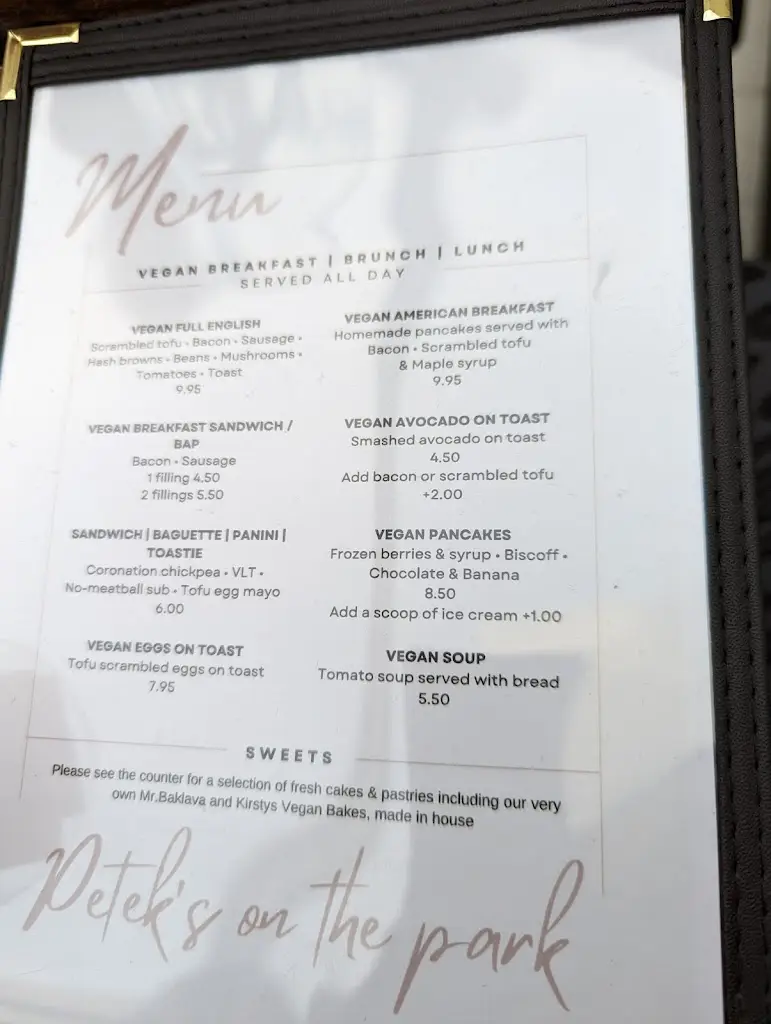 Menu
VEGAN BREAKFAST | BRUNCH | LUNCH
SERVED ALL DAY
VEGAN FULL ENGLISH
Scrambled tofu • Bacon • Sausage •
Hash browns • Beans • Mushrooms •
Tomatoes • Toast
9.95
VEGAN BREAKFAST SANDWICH /
BAP
Bacon • Sausage
1 filling 4.50
2 fillings 5.50
SANDWICH | BAGUETTE | PANINI |
TOASTIE
Coronation chickpea • VLT •
No-meatball sub • Tofu egg mayo
6.00
VEGAN EGGS ON TOAST
Tofu scrambled eggs on toast
7.95
VEGAN AMERICAN BREAKFAST
Homemade pancakes served with
Bacon • Scrambled tofu
& Maple syrup
9.95
VEGAN AVOCADO ON TOAST
Smashed avocado on toast
4.50
Add bacon or scrambled tofu
+2.00
VEGAN PANCAKES
Frozen berries & syrup • Biscoff •
Chocolate & Banana
8.50
Add a scoop of ice cream +1.00
VEGAN SOUP
Tomato soup served with bread
5.50
SWEETS
Please see the counter for a selection of fresh cakes & pastries including our very
own Mr.Baklava and Kirstys Vegan Bakes, made in house
Petek's on the park